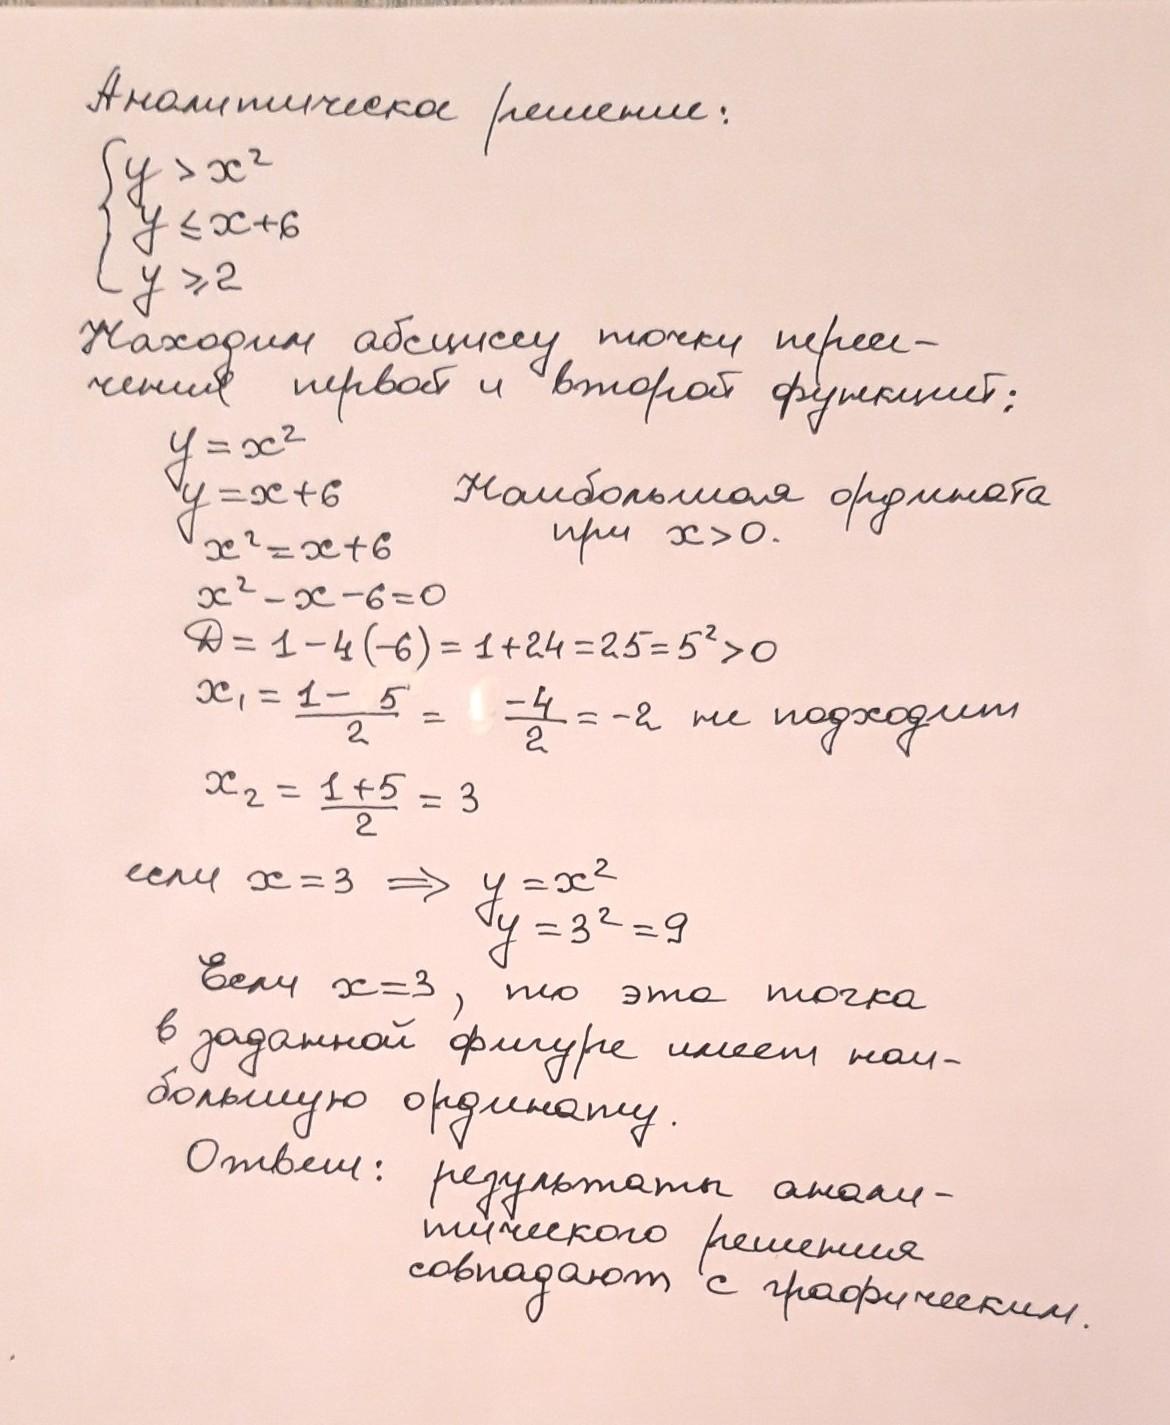 Аналитическое решение:
{y > x²
y ≤ x+6
y ⩾ 2
Находим абсциссу точки пересе-
чения первой и второй функций:
y = x²
y = x+6 Наибольшая ордината
x² = x+6 при x>0.
x² - x - 6 = 0
D = 1 - 4(-6) = 1+24 = 25 = 5² > 0
x₁ = (1 - 5)/2 = -4/2 = -2 не подходит
x₂ = (1+5)/2 = 3
если x = 3 ⇒ y = x²
y = 3² = 9
Если x = 3, то эта точка
в заданной фигуре имеет наи-
большую ординату.
Ответ: результаты анали-
тического решения
совпадают с графическим.